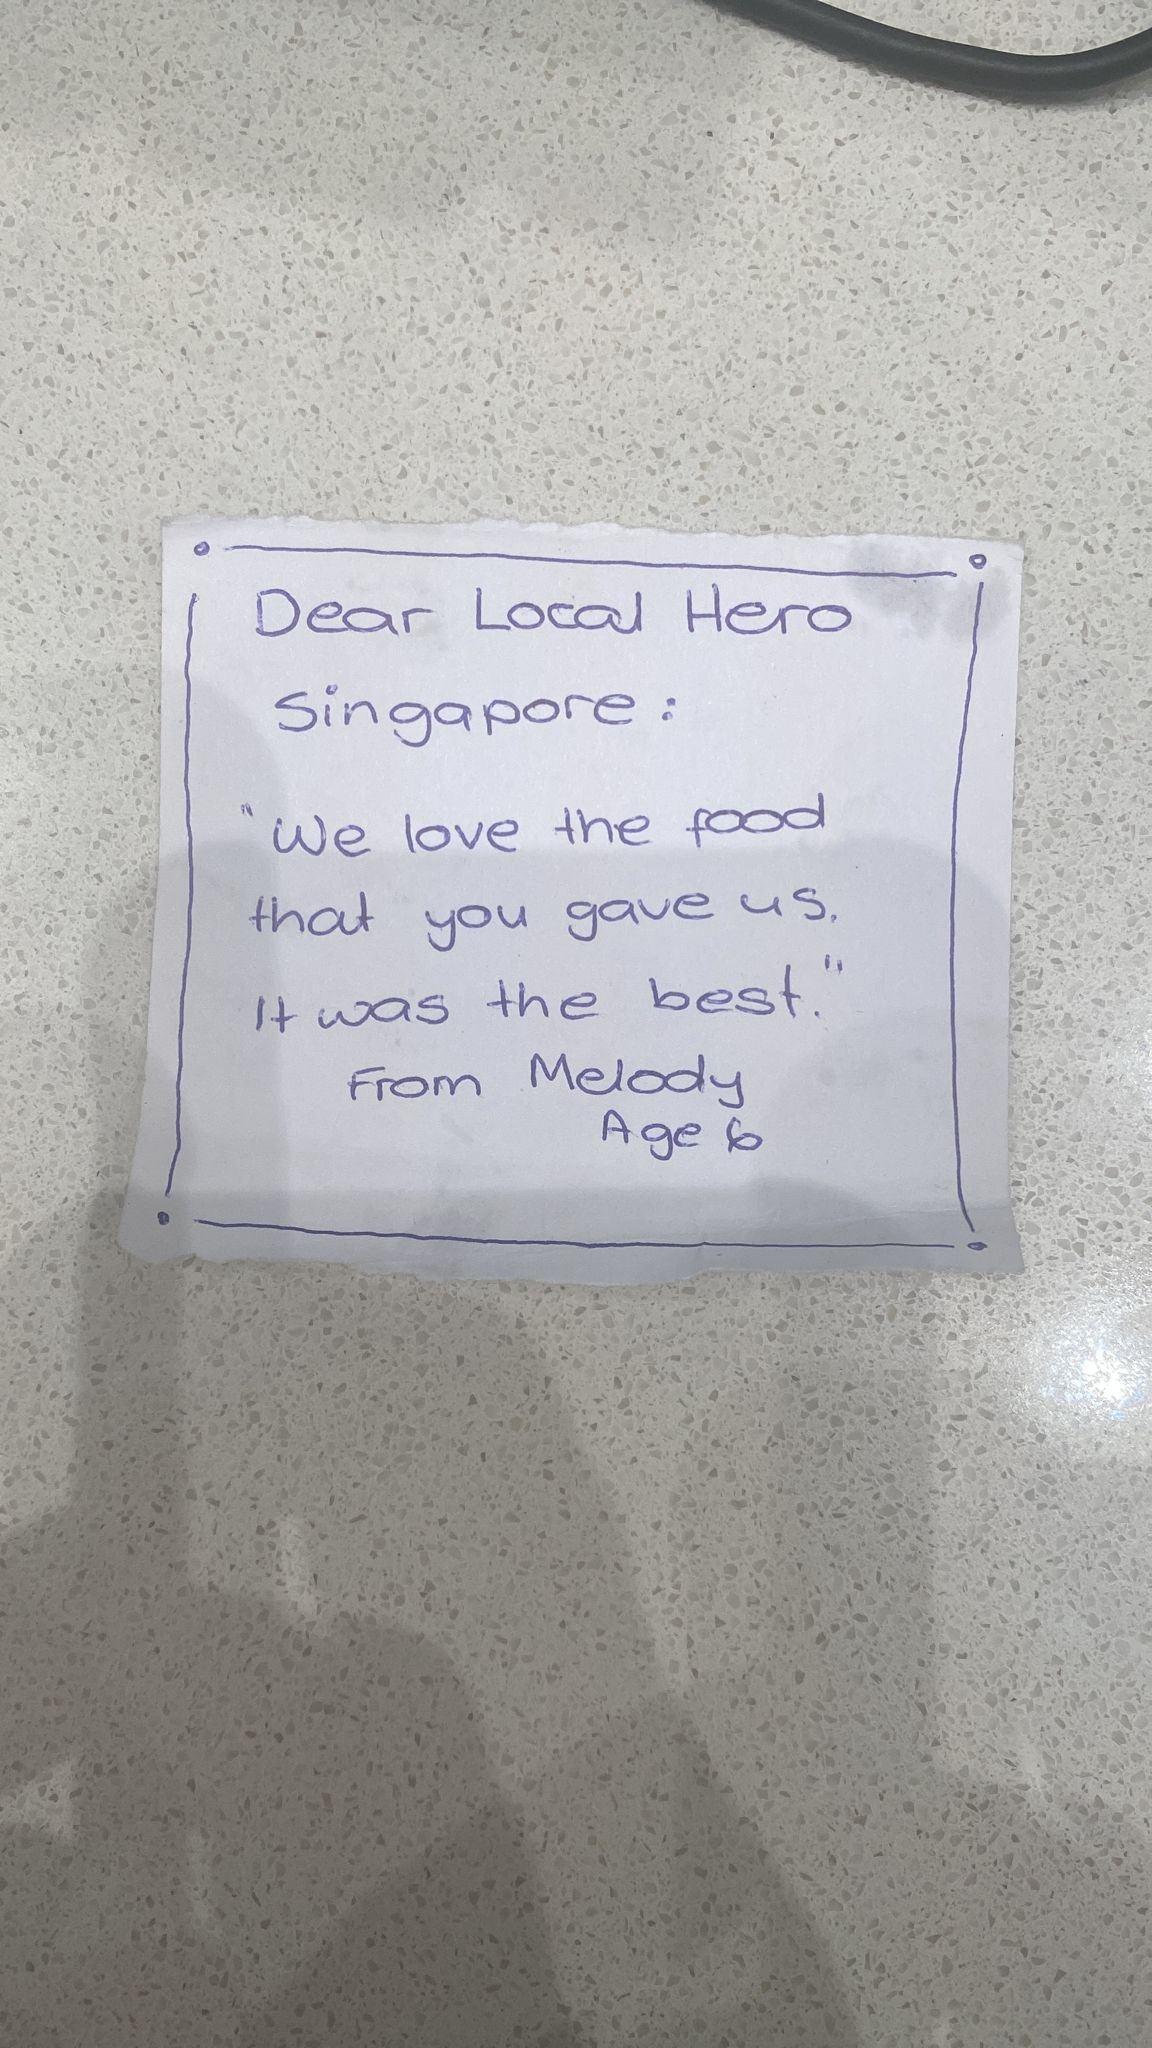 Dear Local Hero
Singapore:
"We love the food
that you gave us.
It was the best."
From Melody
Age 6